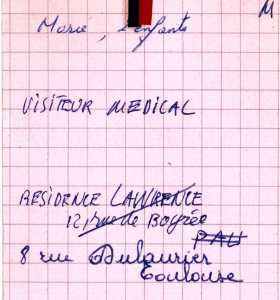 M
Marié, 2 enfants
VISITEUR MEDICAL
RESIDENCE LAWRENCE
12, rue de Boyrée
PAU
8 rue Dulaurier
Toulouse